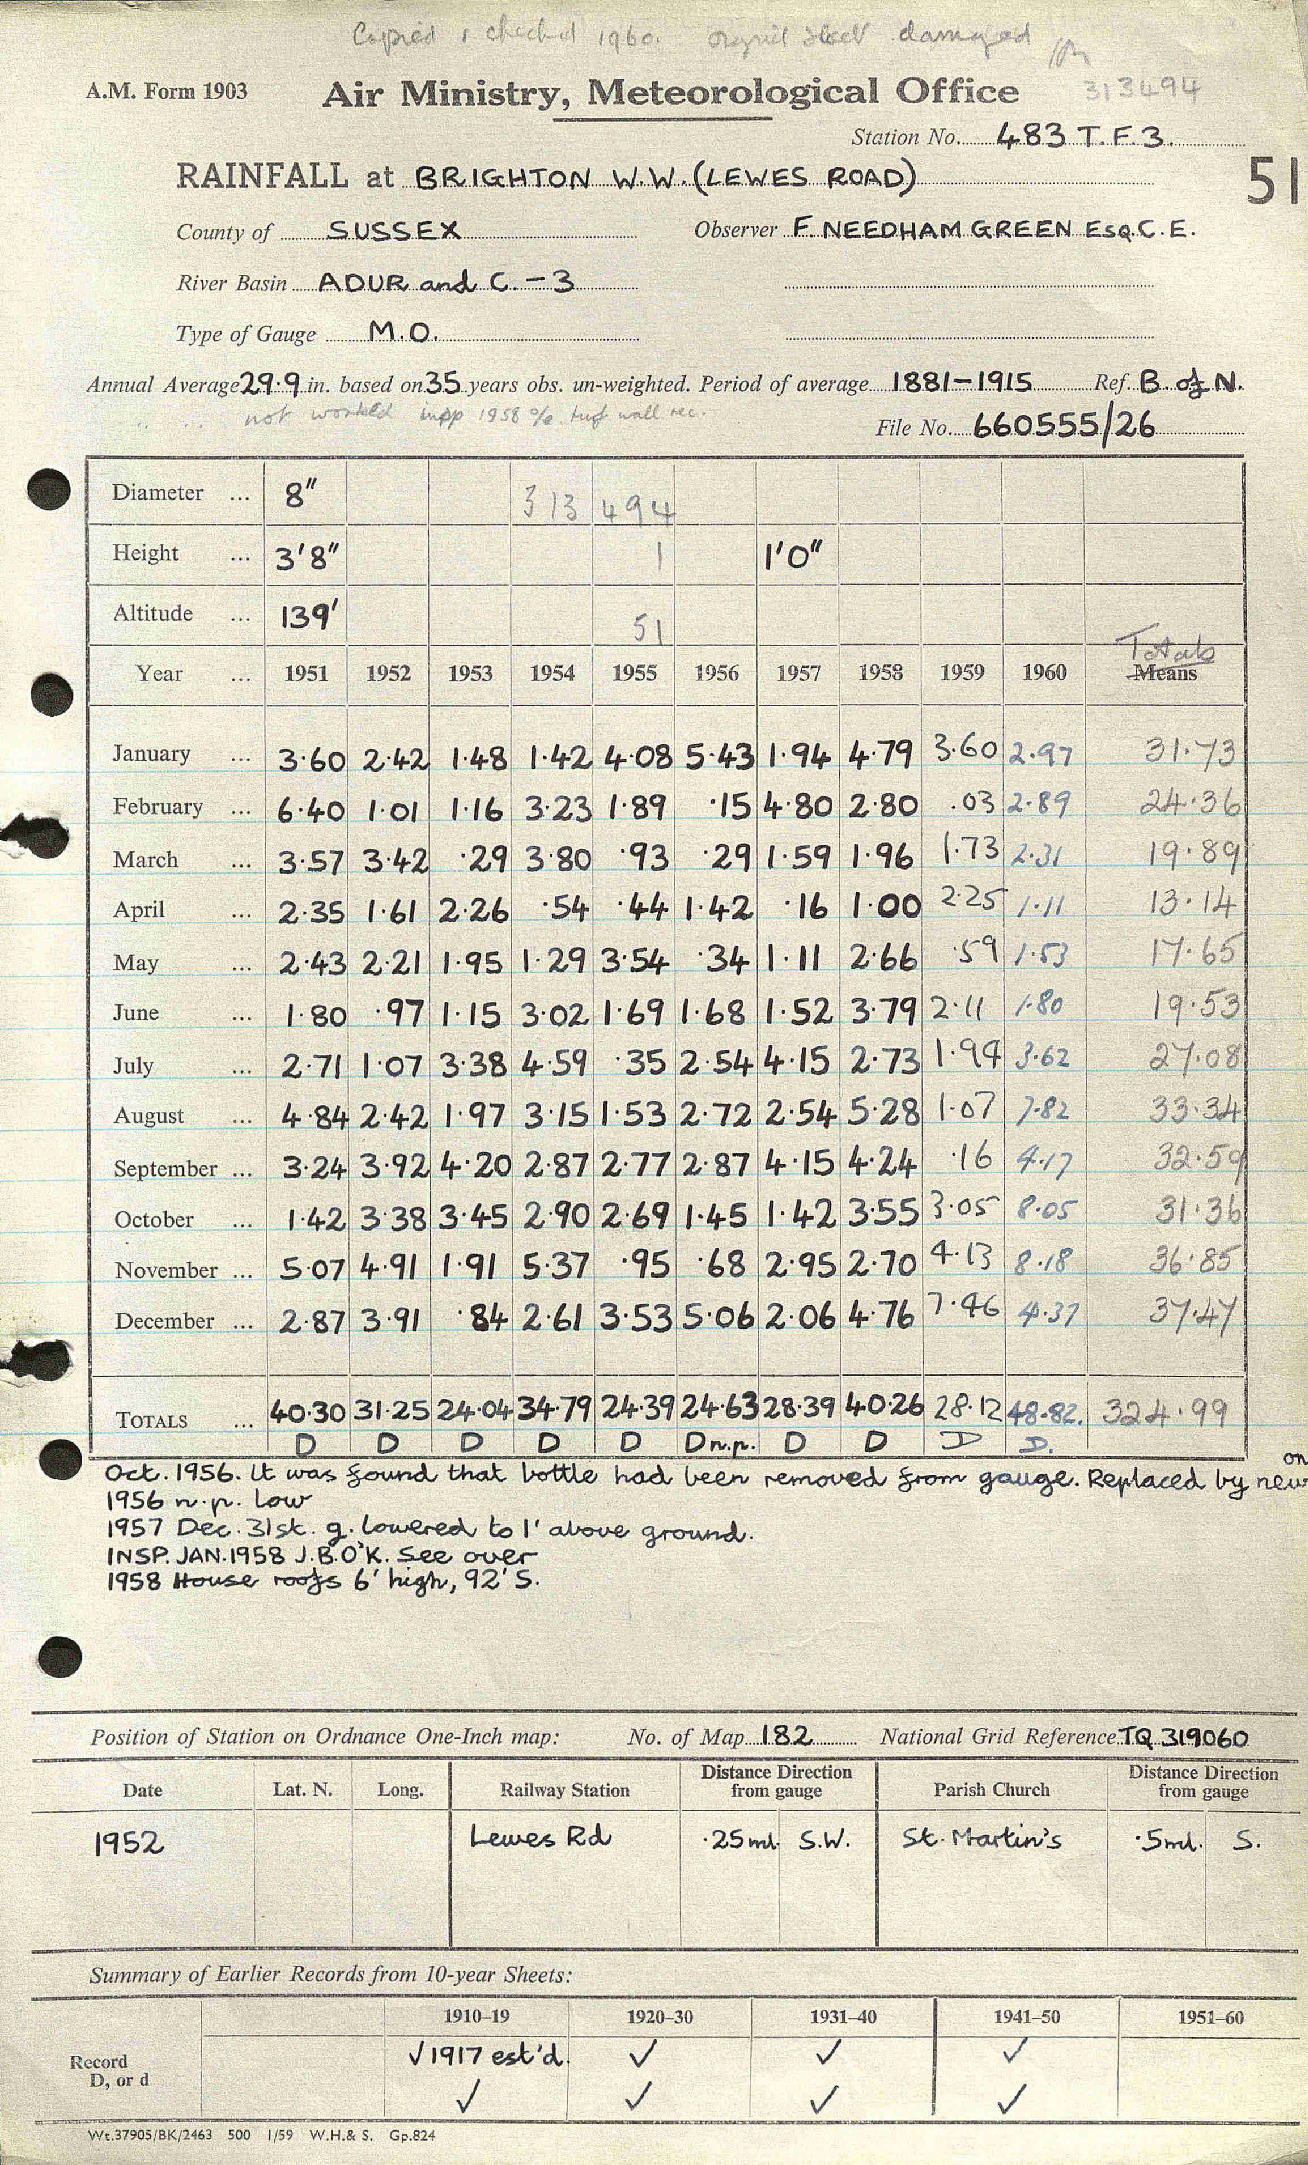 Copied & checked 1960. Original sheet damaged
A.M. Form 1903 Air Ministry, Meteorological Office 313494
Station No. 483 T.F.3.
RAINFALL at BRIGHTON W.W. (LEWES ROAD) 51
County of SUSSEX Observer F. NEEDHAM GREEN Esq. C.E.
River Basin ADUR and C. - 3
Type of Gauge M.O.
Annual Average 29.9 in. based on 35 years obs. un-weighted. Period of average 1881-1915 Ref. B. of N.
not worked turf wall rec.
File No. 660555/26
Diameter ... 8" 313 494
Height ... 3'8" 1 1'0"
Altitude ... 139' 51
Totals
Year ... 1951 1952 1953 1954 1955 1956 1957 1958 1959 1960 Means
January ... 3.60 2.42 1.48 1.42 4.08 5.43 1.94 4.79 3.60 2.97 31.73
February ... 6.40 1.01 1.16 3.23 1.89 .15 4.80 2.80 .03 2.89 24.36
March ... 3.57 3.42 .29 3.80 .93 .29 1.59 1.96 1.73 2.31 19.89
April ... 2.35 1.61 2.26 .54 .44 1.42 .16 1.00 2.25 1.11 13.14
May ... 2.43 2.21 1.95 1.29 3.54 .34 1.11 2.66 .59 1.53 17.65
June ... 1.80 .97 1.15 3.02 1.69 1.68 1.52 3.79 2.11 1.80 19.53
July ... 2.71 1.07 3.38 4.59 .35 2.54 4.15 2.73 1.94 3.62 27.08
August ... 4.84 2.42 1.97 3.15 1.53 2.72 2.54 5.28 1.07 7.82 33.34
September ... 3.24 3.92 4.20 2.87 2.77 2.87 4.15 4.24 .16 4.17 32.59
October ... 1.42 3.38 3.45 2.90 2.69 1.45 1.42 3.55 3.05 8.05 31.36
November ... 5.07 4.91 1.91 5.37 .95 .68 2.95 2.70 4.13 8.18 36.85
December ... 2.87 3.91 .84 2.61 3.53 5.06 2.06 4.76 7.46 4.37 37.47
TOTALS ... 40.30 31.25 24.04 34.79 24.39 24.63 28.39 40.26 28.12 48.82. 324.99
D D D D D D n.p. D D D D.
Oct. 1956. It was found that bottle had been removed from gauge. Replaced by new on
1956 n.p. low
1957 Dec. 31st. g. lowered to 1' above ground.
INSP. JAN. 1958 J.B.O'K. See over
1958 House roofs 6' high, 92' S.
Position of Station on Ordnance One-Inch map: No. of Map 182 National Grid Reference TQ 319060
Date Lat. N. Long. Railway Station Distance Direction from gauge Parish Church Distance Direction from gauge
1952 Lewes Rd .25ml. S.W. St. Martin's .5ml. S.
Summary of Earlier Records from 10-year Sheets:
1910-19 1920-30 1931-40 1941-50 1951-60
Record ✓1917 est'd. ✓ ✓ ✓
D, or d ✓ ✓ ✓ ✓
Wt.37905/BK/2463 500 1/59 W.H.& S. Gp.824